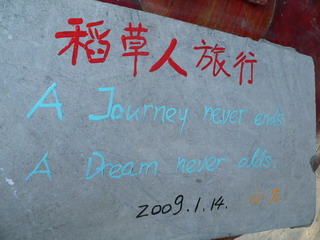 稻草人旅行
A Journey never ends
A Dream never olds.
2009.1.14.